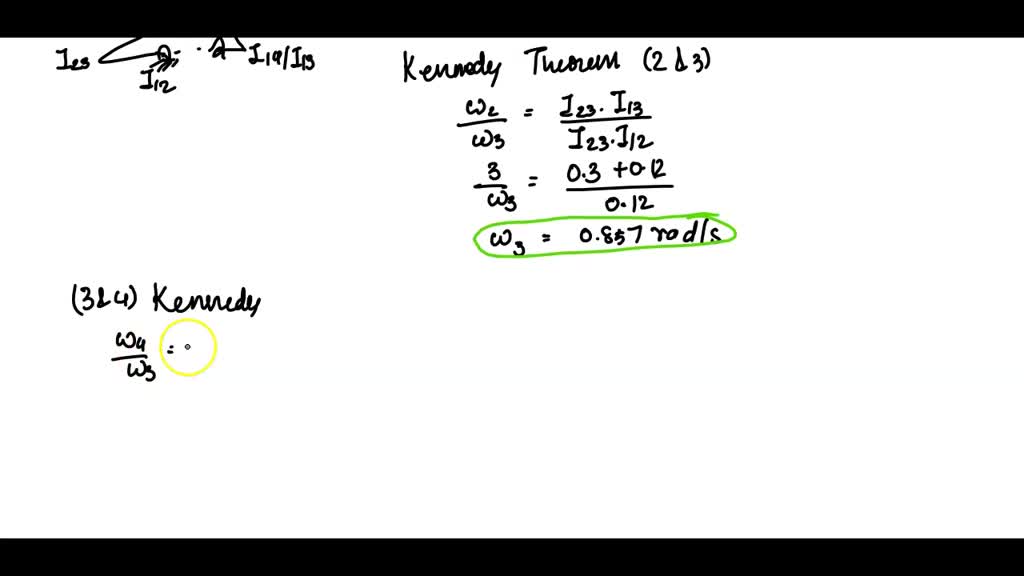 I23
I12
I14/I13
Kennedy Theorem (2 & 3)
ω2/ω3 = I23.I13/I23.I12
3/ω3 = 0.3 + 0.12/0.12
ω3 = 0.857 rad/s
(3 & 4) Kennedy
ω4/ω3 =